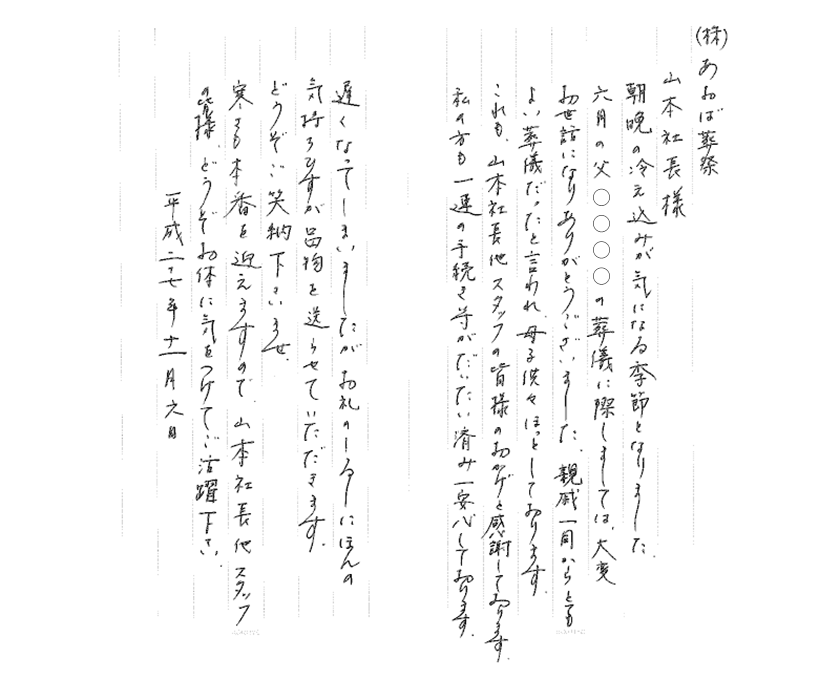 (株)あおば葬祭
山本社長様
朝晩の冷え込みが気になる季節となりました。
六月の父〇〇〇〇の葬儀に際しましては、大変
お世話になりありがとうございました。親戚一同からとても
よい葬儀だったと言われ、母子供々ほっとしております。
これも、山本社長他スタッフの皆様のおかげと感謝しております。
私の方も一連の手続き等がだいたい済み一安心しております。
遅くなってしまいましたがお礼のしるしにほんの
気持ちですが品物を送らせていただきます。
どうぞご笑納下さいませ。
寒さも本番を迎えますので、山本社長他スタッフ
の皆様、どうぞお体に気をつけてご活躍下さい。
平成二十七年十一月六日